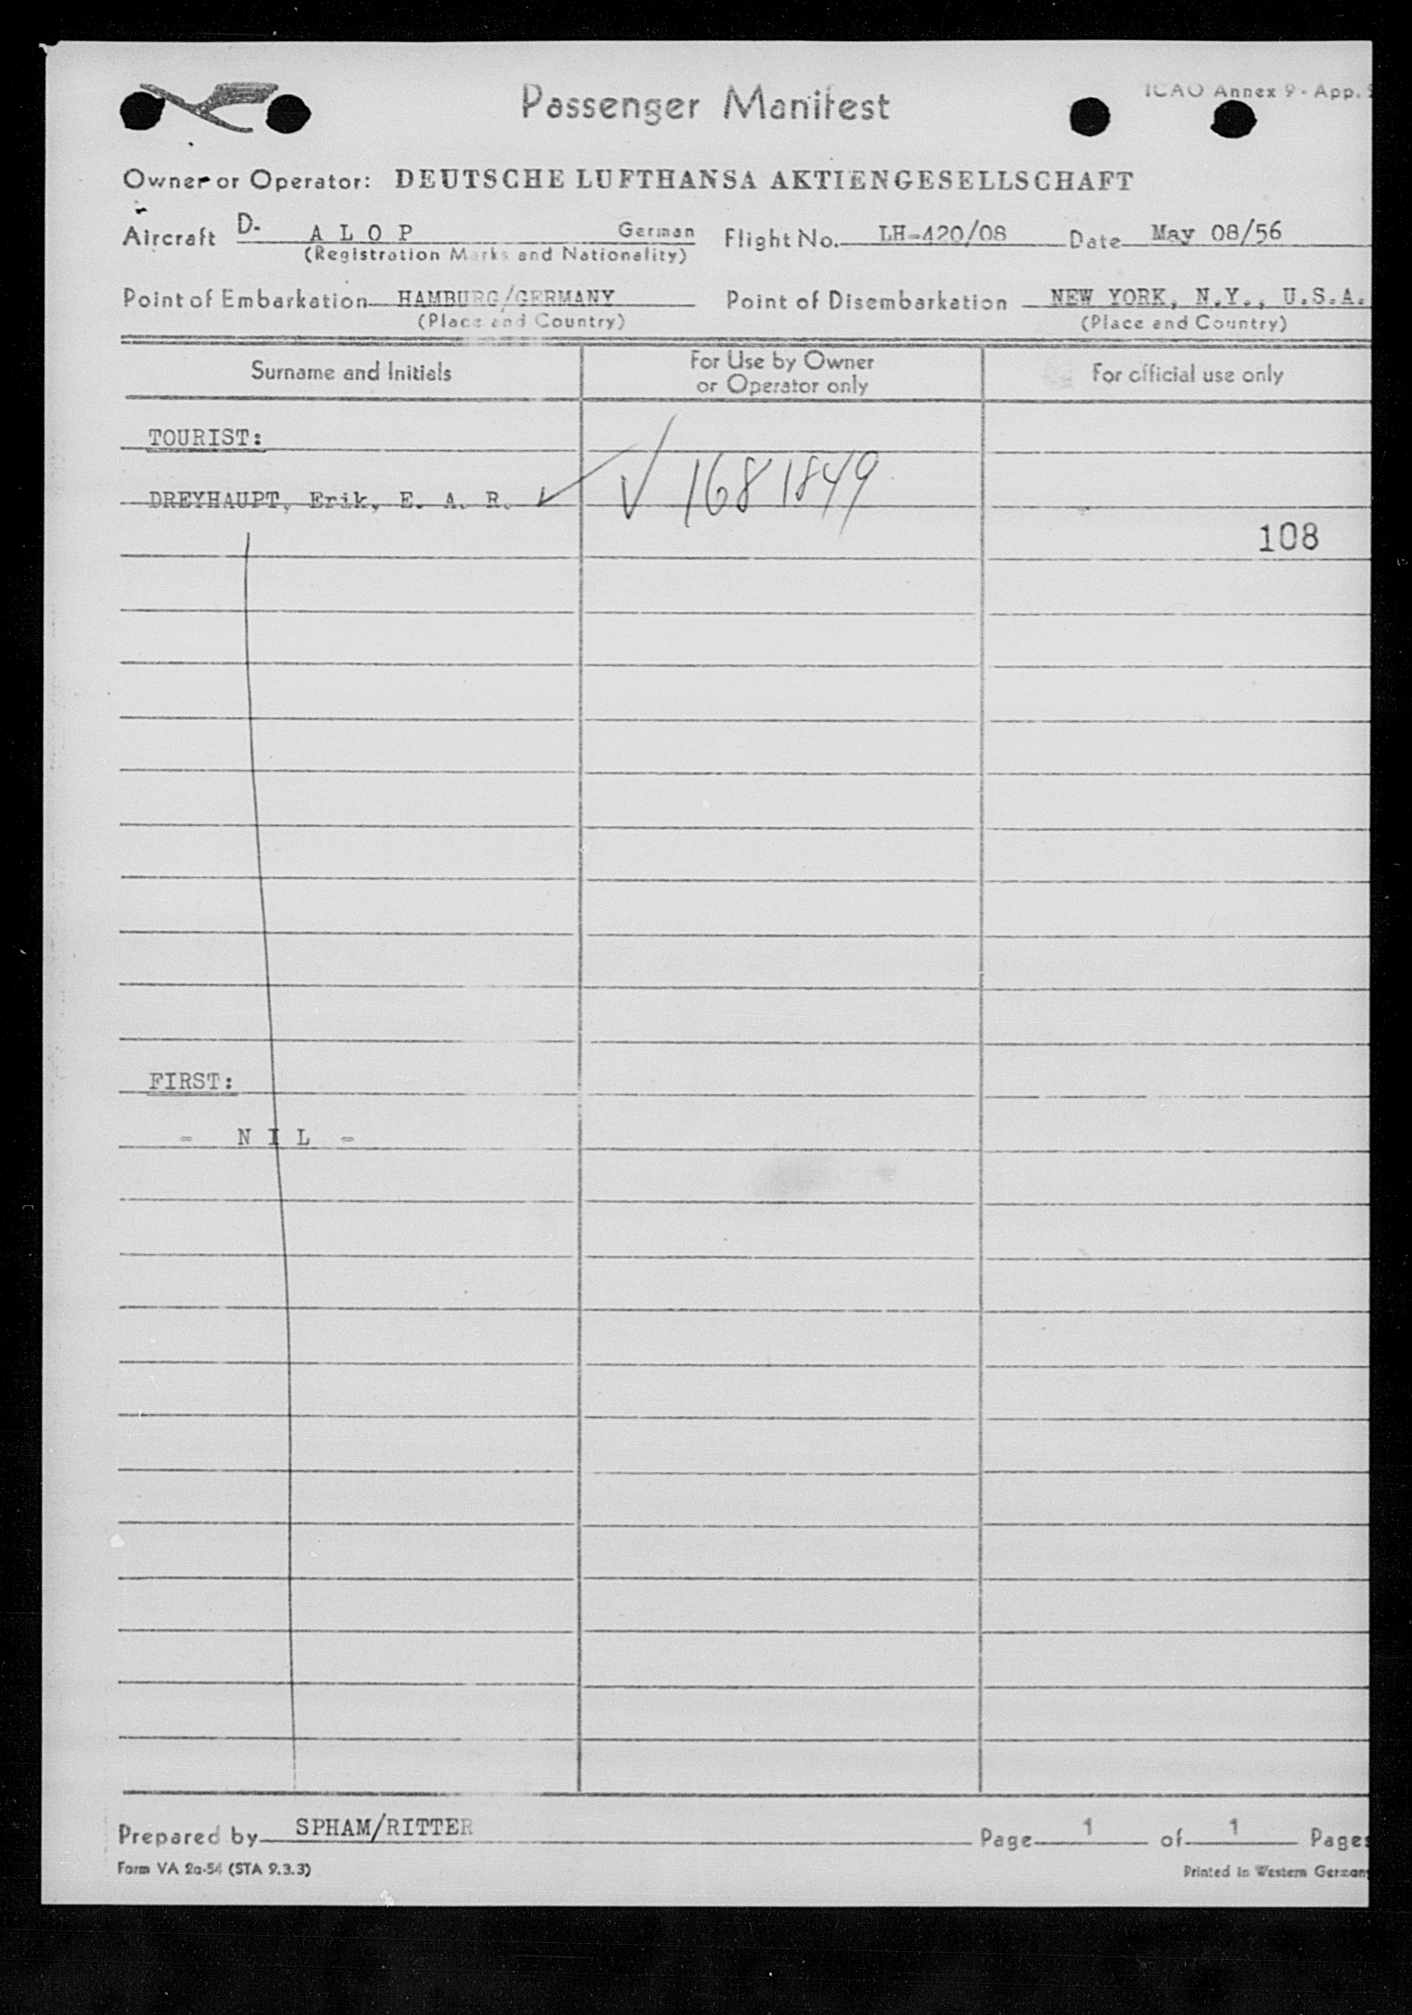 Passenger Manifest
ICAO Annex 9 - App.
Owner or Operator: DEUTSCHE LUFTHANSA AKTIENGESELLSCHAFT
Aircraft D- A L O P German Flight No. LH-420/08 Date May 08/56
(Registration Marks and Nationality)
Point of Embarkation HAMBURG/GERMANY Point of Disembarkation NEW YORK, N.Y., U.S.A.
(Place and Country) (Place and Country)
Surname and Initials For Use by Owner or Operator only For official use only
TOURIST:
DREYHAUPT, Erik, E. A. R. ✓ ✓ 1681849
108
FIRST:
- N I L -
Prepared by SPHAM/RITTER Page 1 of 1 Pages
Form VA 2a-54 (STA 9.3.3) Printed in Western Germany